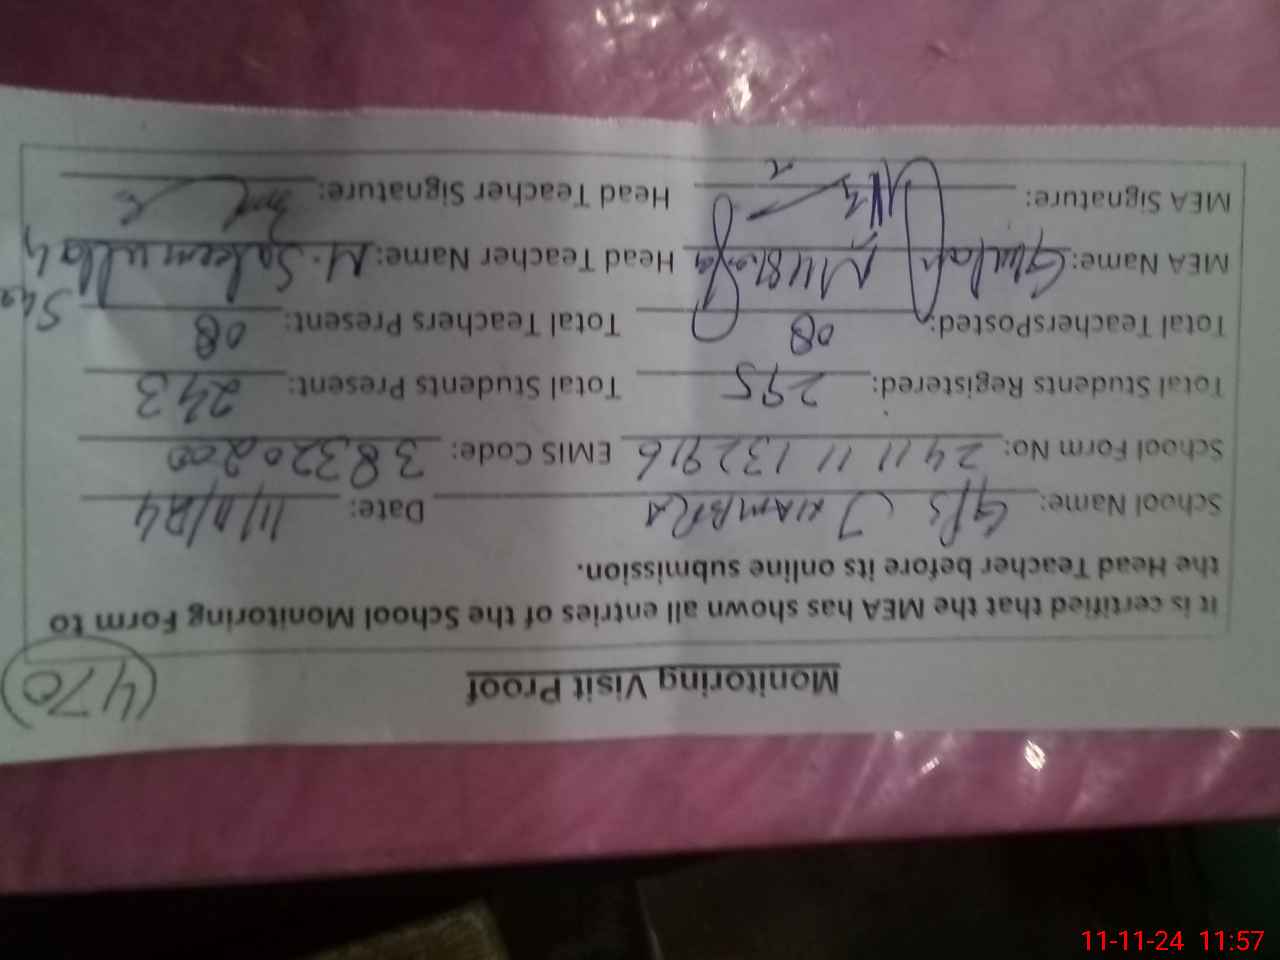 Monitoring Visit Proof
(470)
It is certified that the MEA has shown all entries of the School Monitoring Form to
the Head Teacher before its online submission.
School Name: GPS Date: 11/11/24
School Form No: 241111132916 EMIS Code: 38320200
Total Students Registered: 295 Total Students Present: 243
Total TeachersPosted: 08 Total Teachers Present: 08
MEA Name: Ghulam Head Teacher Name: M. Saleem ullah
MEA Signature: Head Teacher Signature:
11-11-24 11:57